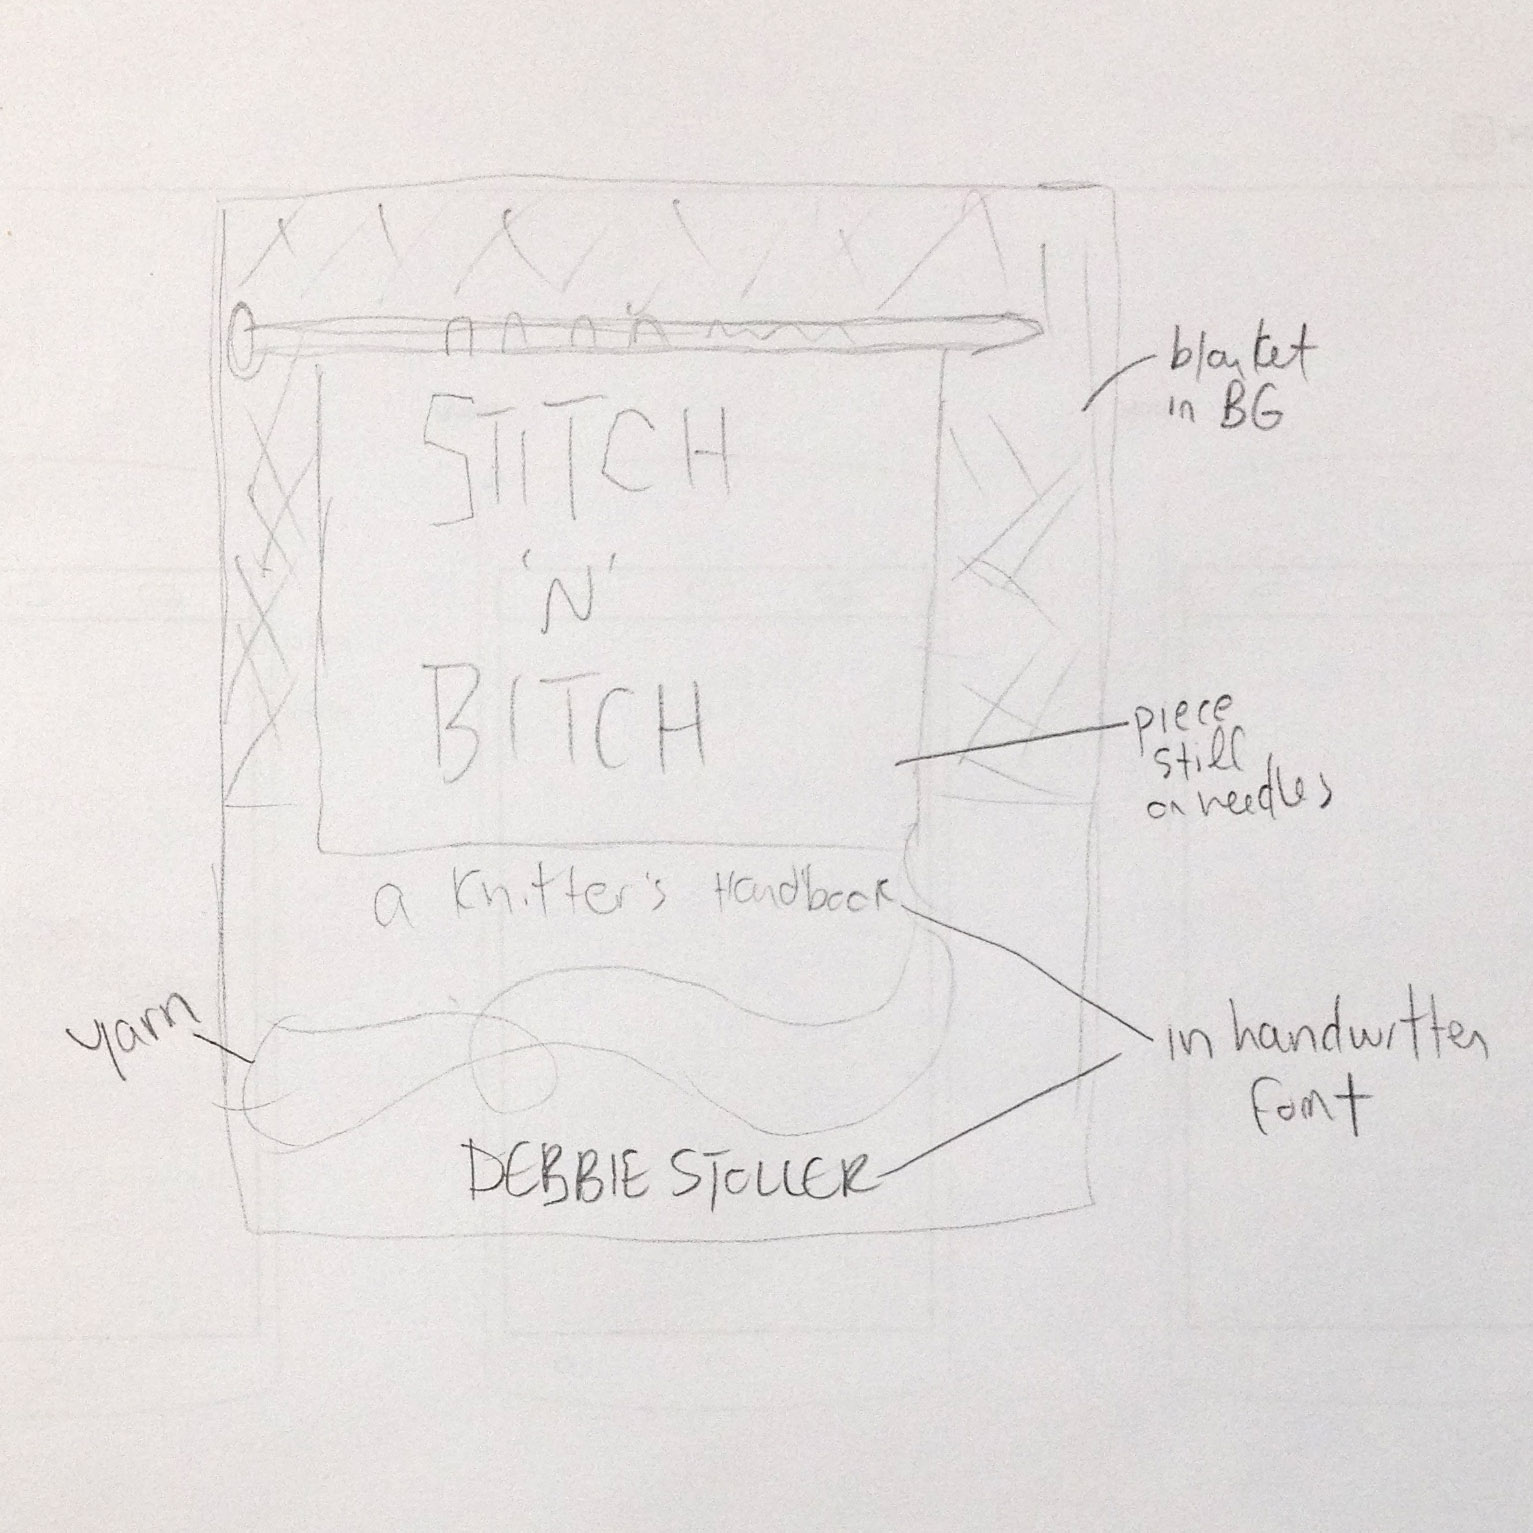 STITCH
'N'
BITCH
a Knitter's Handbook
DEBBIE STOLLER
blanket
in BG
piece
still
on needles
yarn
in handwritten
font